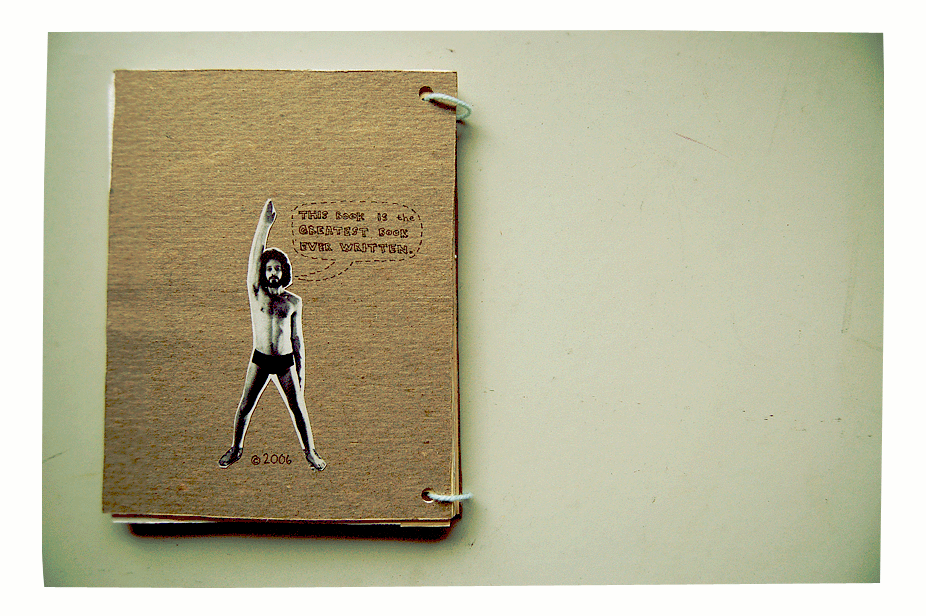 THIS BOOK IS the
GREATEST BOOK
EVER WRITTEN.
©2006